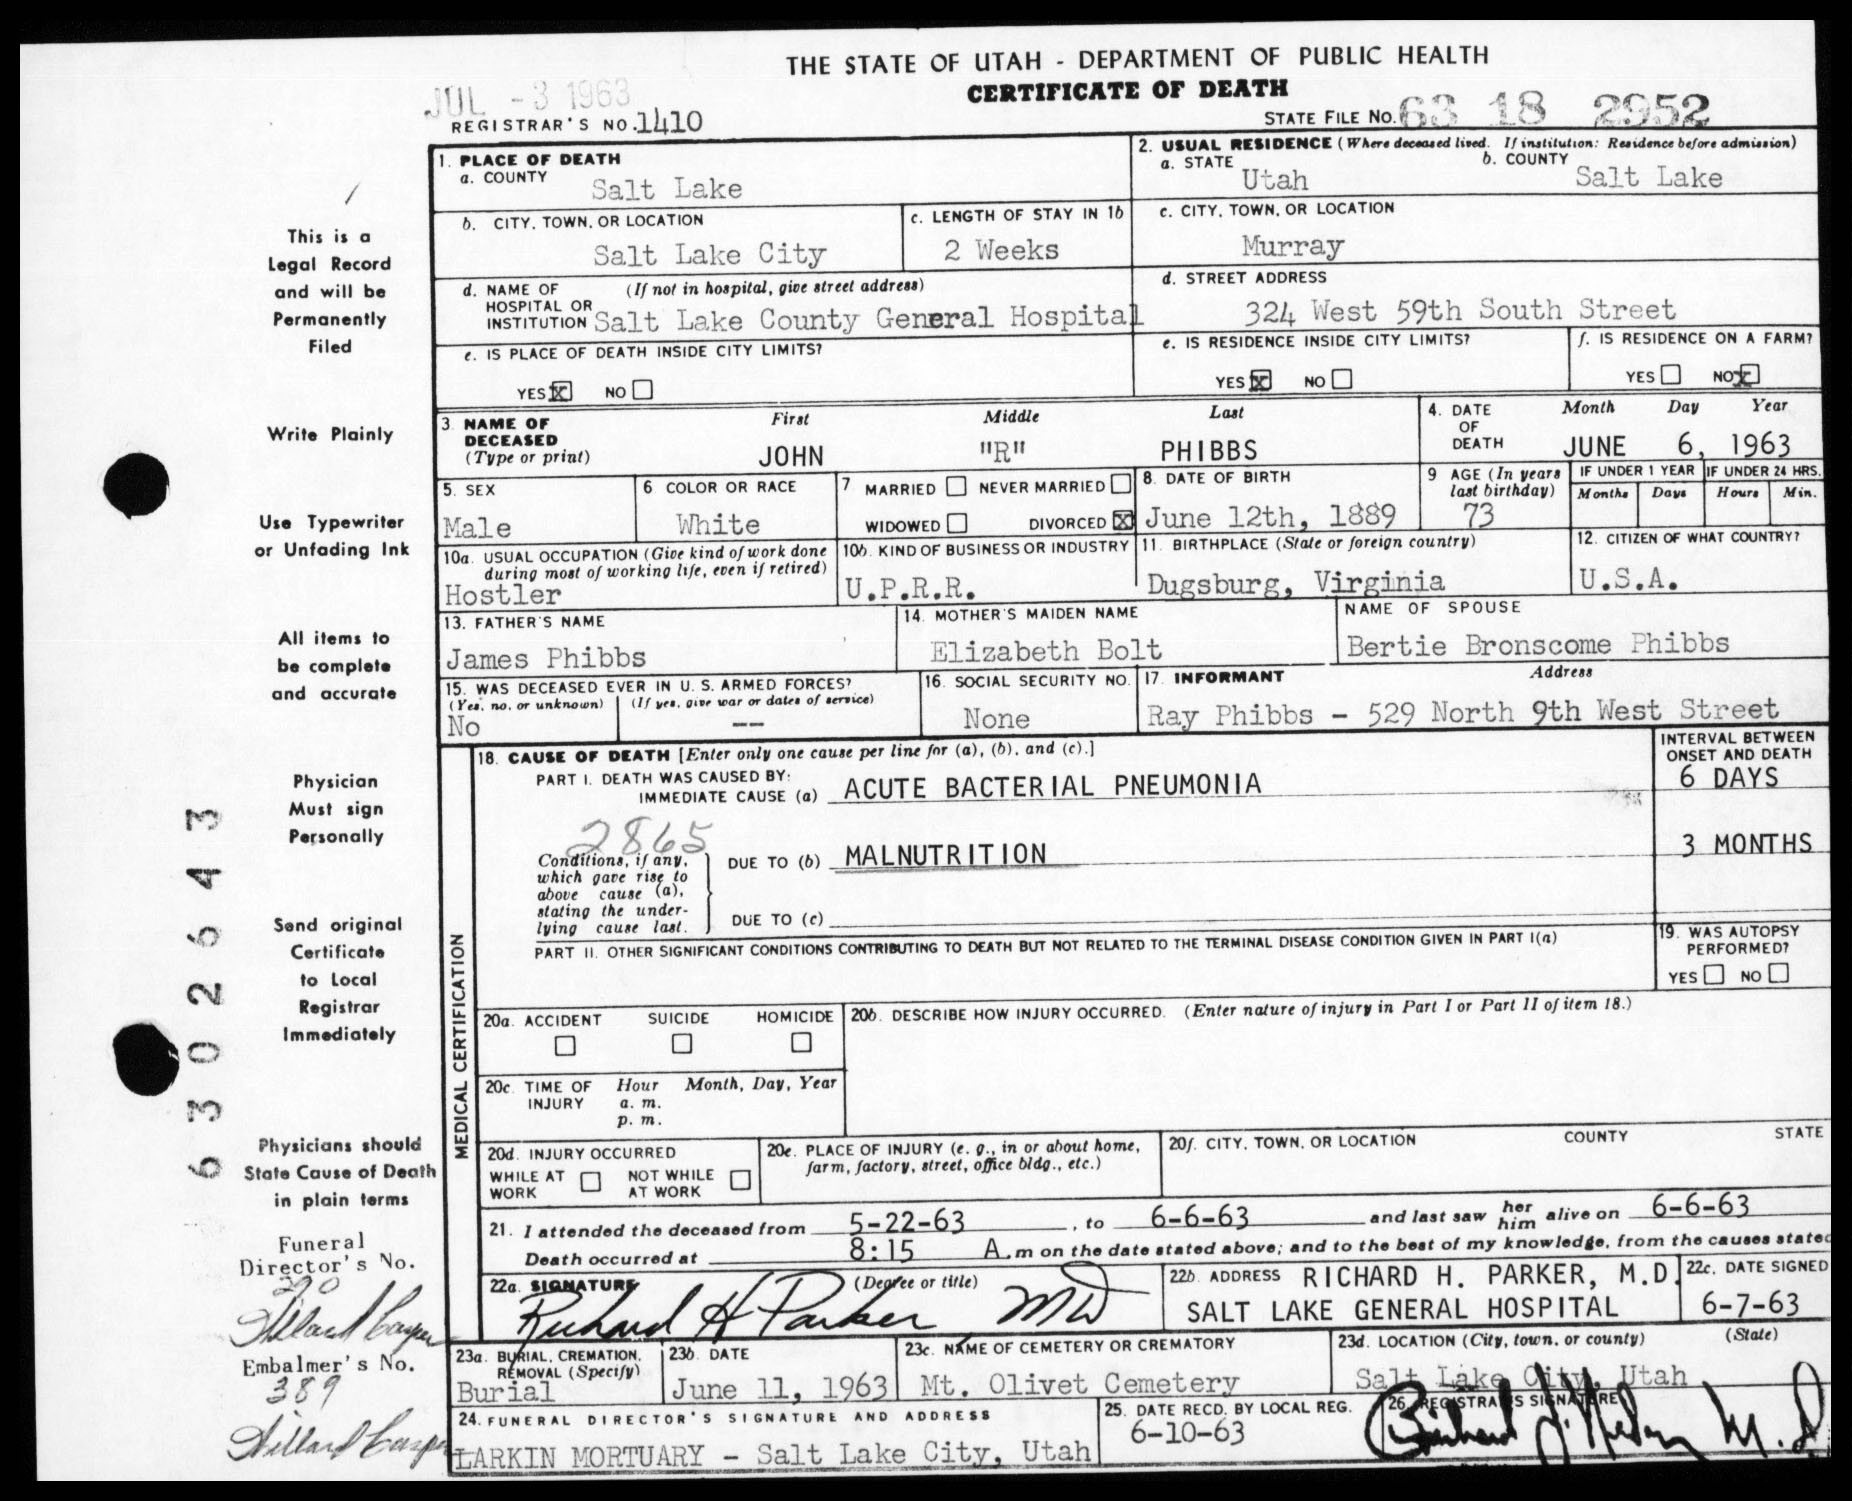 THE STATE OF UTAH - DEPARTMENT OF PUBLIC HEALTH
CERTIFICATE OF DEATH
JUL -3 1963
REGISTRAR'S NO. 1410
STATE FILE NO. 63 18 2952
1. PLACE OF DEATH
a. COUNTY Salt Lake
2. USUAL RESIDENCE (Where deceased lived. If institution: Residence before admission)
a. STATE Utah b. COUNTY Salt Lake
b. CITY, TOWN, OR LOCATION Salt Lake City
c. LENGTH OF STAY IN 1b 2 Weeks
c. CITY, TOWN, OR LOCATION Murray
d. NAME OF HOSPITAL OR INSTITUTION (If not in hospital, give street address) Salt Lake County General Hospital
d. STREET ADDRESS 324 West 59th South Street
e. IS PLACE OF DEATH INSIDE CITY LIMITS?
YES X NO
e. IS RESIDENCE INSIDE CITY LIMITS?
YES X NO
f. IS RESIDENCE ON A FARM?
YES NO X
3. NAME OF DECEASED (Type or print)
First Middle Last
JOHN "R" PHIBBS
4. DATE OF DEATH Month Day Year
JUNE 6, 1963
5. SEX Male
6 COLOR OR RACE White
7 MARRIED NEVER MARRIED
WIDOWED DIVORCED X
8. DATE OF BIRTH June 12th, 1889
9 AGE (In years last birthday) 73
IF UNDER 1 YEAR Months Days
IF UNDER 24 HRS. Hours Min.
10a. USUAL OCCUPATION (Give kind of work done during most of working life, even if retired) Hostler
10b. KIND OF BUSINESS OR INDUSTRY U.P.R.R.
11. BIRTHPLACE (State or foreign country) Dugsburg, Virginia
12. CITIZEN OF WHAT COUNTRY? U.S.A.
13. FATHER'S NAME James Phibbs
14. MOTHER'S MAIDEN NAME Elizabeth Bolt
NAME OF SPOUSE Bertie Bronscome Phibbs
15. WAS DECEASED EVER IN U. S. ARMED FORCES?
(Yes, no, or unknown) (If yes, give war or dates of service)
No --
16. SOCIAL SECURITY NO. None
17. INFORMANT Address
Ray Phibbs - 529 North 9th West Street
MEDICAL CERTIFICATION
18. CAUSE OF DEATH [Enter only one cause per line for (a), (b), and (c).]
INTERVAL BETWEEN ONSET AND DEATH
PART I. DEATH WAS CAUSED BY:
IMMEDIATE CAUSE (a) ACUTE BACTERIAL PNEUMONIA 6 DAYS
2865
Conditions, if any, which gave rise to above cause (a), stating the underlying cause last.
DUE TO (b) MALNUTRITION 3 MONTHS
DUE TO (c)
PART II. OTHER SIGNIFICANT CONDITIONS CONTRIBUTING TO DEATH BUT NOT RELATED TO THE TERMINAL DISEASE CONDITION GIVEN IN PART I(a)
19. WAS AUTOPSY PERFORMED?
YES NO
20a. ACCIDENT SUICIDE HOMICIDE
20b. DESCRIBE HOW INJURY OCCURRED. (Enter nature of injury in Part I or Part II of item 18.)
20c. TIME OF INJURY Hour Month, Day, Year
a. m.
p. m.
20d. INJURY OCCURRED
WHILE AT WORK NOT WHILE AT WORK
20e. PLACE OF INJURY (e. g., in or about home, farm, factory, street, office bldg., etc.)
20f. CITY, TOWN, OR LOCATION COUNTY STATE
21. I attended the deceased from 5-22-63, to 6-6-63 and last saw her him alive on 6-6-63
Death occurred at 8:15 A.m on the date stated above; and to the best of my knowledge, from the causes stated
22a. SIGNATURE (Degree or title)
Richard H Parker MD
22b. ADDRESS RICHARD H. PARKER, M.D.
SALT LAKE GENERAL HOSPITAL
22c. DATE SIGNED 6-7-63
23a. BURIAL, CREMATION, REMOVAL (Specify) Burial
23b. DATE June 11, 1963
23c. NAME OF CEMETERY OR CREMATORY Mt. Olivet Cemetery
23d. LOCATION (City, town, or county) (State)
Salt Lake City, Utah
24. FUNERAL DIRECTOR'S SIGNATURE AND ADDRESS
LARKIN MORTUARY - Salt Lake City, Utah
25. DATE RECD. BY LOCAL REG. 6-10-63
26. REGISTRAR'S SIGNATURE
M.D.
This is a
Legal Record
and will be
Permanently
Filed
Write Plainly
Use Typewriter
or Unfading Ink
All items to
be complete
and accurate
Physician
Must sign
Personally
Send original
Certificate
to Local
Registrar
Immediately
Physicians should
State Cause of Death
in plain terms
Funeral
Director's No.
290
Embalmer's No.
389
6302643